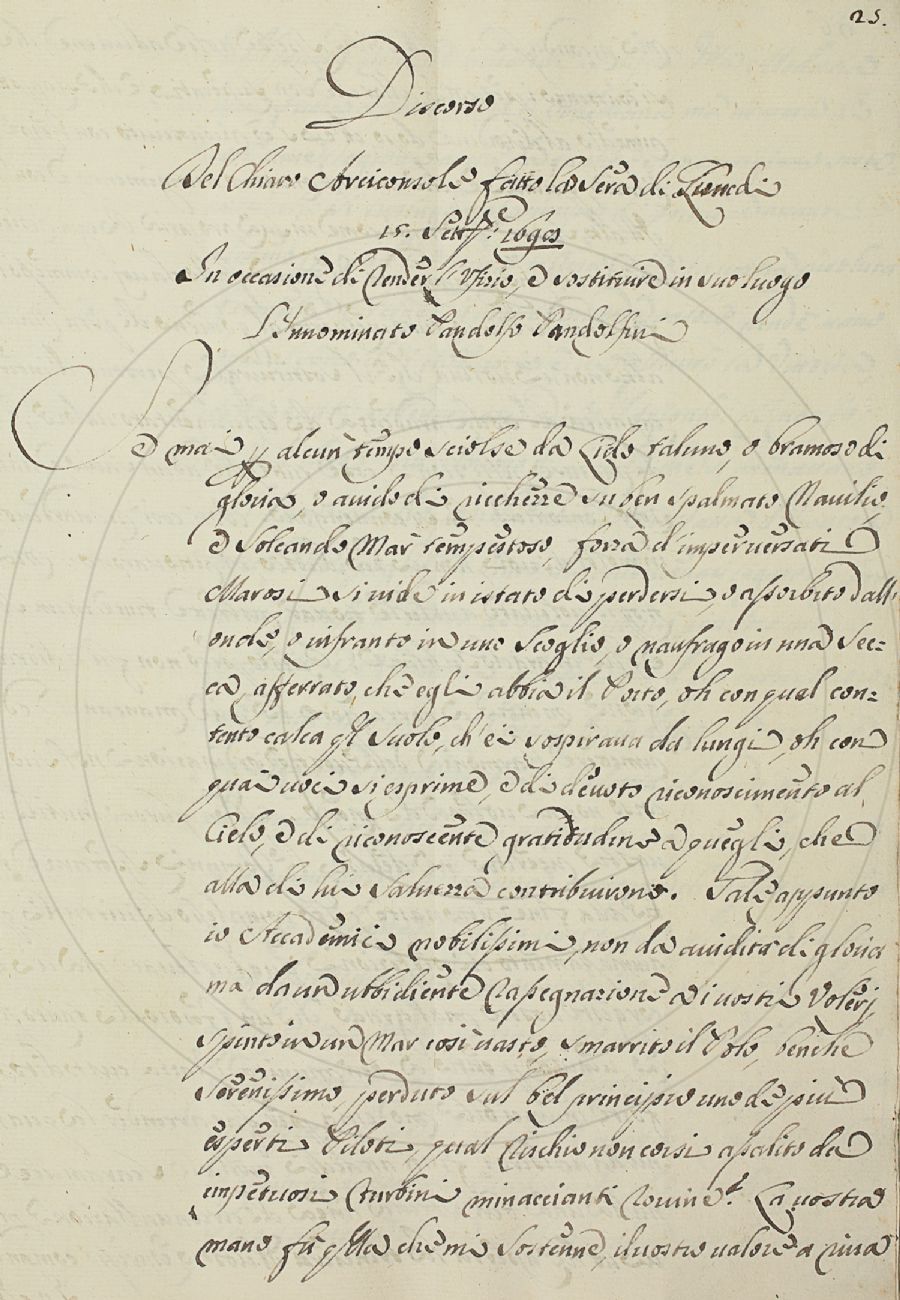 25.
Discorso
Del Chiaro Arciconsolo fatto la Sera di Lunedi
15. Sett.e
In occasione di render l'Ufizio, e sostituire in suo luogo
L'Innominato Pandolfo Pandolfini
Se mai p alcun tempo sciolse da Lido taluno, o bramoso di
gloria, o avido di ricchezze su ben spalmato Navilio,
e Solcando Mar tempestoso, forza d'imperversati
Marosi si vide in istato di perdersi, o assorbito dall'
onde, o infranto in uno Scoglio, o naufrago in una Sec=
ca, afferrato, che egli abbia il Porto, oh con qual con=
tento calca ql Suolo, ch'ei sospirava da lungi, oh con
quai voci si esprime, e di devoto riconoscimento al
Cielo, e di riconoscente gratitudine a quegli, che
alla di lui Salvezza contribuirono. Tale appunto
io Accademici nobilissimi, non da avidità di gloria
ma da una ubbidiente rassegnazione a i vostri Voleri,
spinto in un Mar così vasto, smarrito il Polo, benche
Serenissimo, perduto sul bel principio uno de più
esperti Piloti, qual rischio non corsi assalito da
impetuosi turbini minaccianti rovine? La vostra
mano fù qlla, che mi Sostenne, il vostro valore a riva